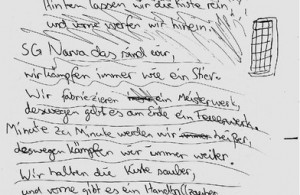 Hinten lassen wir die Kiste rein
und vorne werfen wir hinein.
SG Narva das sind wir,
wir kämpfen immer wie ein Stier.
Wir fabrizieren ein Meisterwerk,
deswegen gibt es am Ende ein Feuerwerk.
Minute zu Minute werden wir heißer,
deswegen kämpfen wir immer weiter.
Wir halten die Kiste sauber,
und vorne gibt es ein Handballzauber